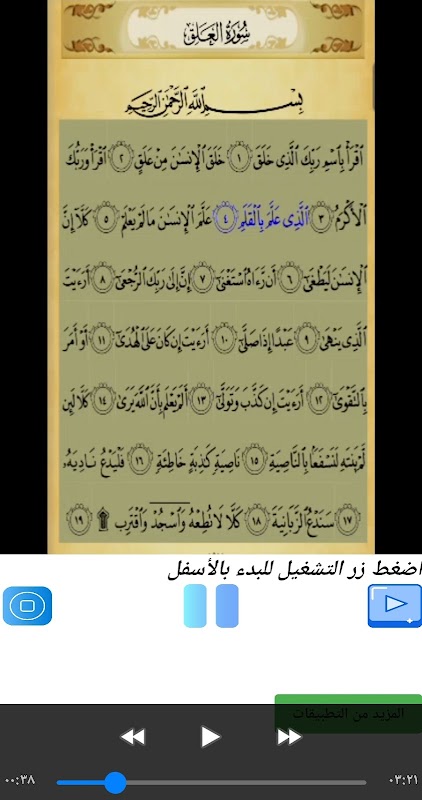 سُورَةُ الْعَلَقِ
بِسْمِ ٱللَّهِ ٱلرَّحْمَٰنِ ٱلرَّحِيمِ
ٱقْرَأْ بِٱسْمِ رَبِّكَ ٱلَّذِى خَلَقَ ١ خَلَقَ ٱلْإِنسَٰنَ مِنْ عَلَقٍ ٢ ٱقْرَأْ وَرَبُّكَ
ٱلْأَكْرَمُ ٣ ٱلَّذِى عَلَّمَ بِٱلْقَلَمِ ٤ عَلَّمَ ٱلْإِنسَٰنَ مَا لَمْ يَعْلَمْ ٥ كَلَّآ إِنَّ
ٱلْإِنسَٰنَ لَيَطْغَىٰٓ ٦ أَن رَّءَاهُ ٱسْتَغْنَىٰٓ ٧ إِنَّ إِلَىٰ رَبِّكَ ٱلرُّجْعَىٰٓ ٨ أَرَءَيْتَ
ٱلَّذِى يَنْهَىٰ ٩ عَبْدًا إِذَا صَلَّىٰٓ ١٠ أَرَءَيْتَ إِن كَانَ عَلَى ٱلْهُدَىٰٓ ١١ أَوْ أَمَرَ
بِٱلتَّقْوَىٰٓ ١٢ أَرَءَيْتَ إِن كَذَّبَ وَتَوَلَّىٰٓ ١٣ أَلَمْ يَعْلَم بِأَنَّ ٱللَّهَ يَرَىٰ ١٤ كَلَّا لَئِن
لَّمْ يَنتَهِ لَنَسْفَعًۢا بِٱلنَّاصِيَةِ ١٥ نَاصِيَةٍ كَٰذِبَةٍ خَاطِئَةٍ ١٦ فَلْيَدْعُ نَادِيَهُۥ
١٧ سَنَدْعُ ٱلزَّبَانِيَةَ ١٨ كَلَّا لَا تُطِعْهُ وَٱسْجُدْ وَٱقْتَرِب ۩ ١٩
اضغط زر التشغيل للبدء بالأسفل
المزيد من التطبيقات
٠٠:٣٨
٠٣:٢١